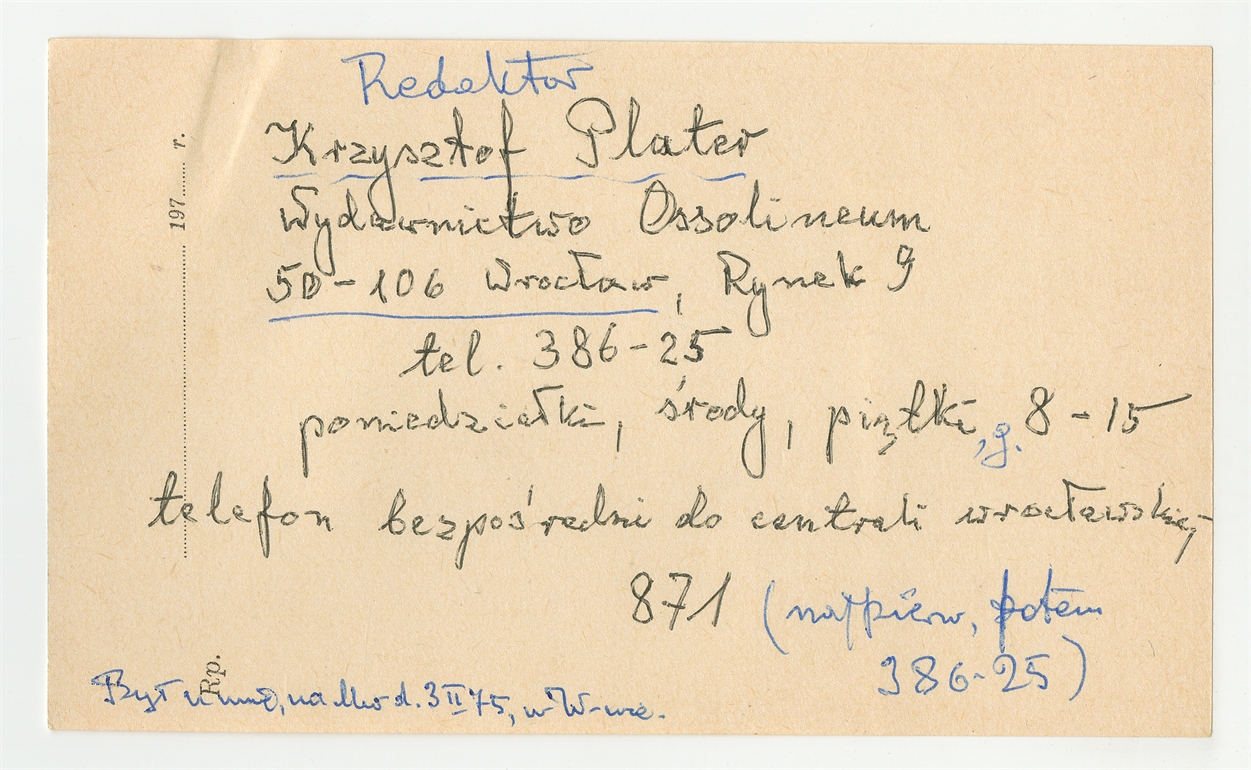 Redaktor
Krzysztof Plater
Wydawnictwo Ossolineum
50-106 Wrocław, Rynek 9
tel. 386-25
poniedziałki, środy, piątki, g. 8-15
telefon bezpośredni do centrali wrocławskiej
871 (najpierw, potem
386-25)
Był u mnie, na d. 3 II 75, w W-wie.
197...... r.
Rp.